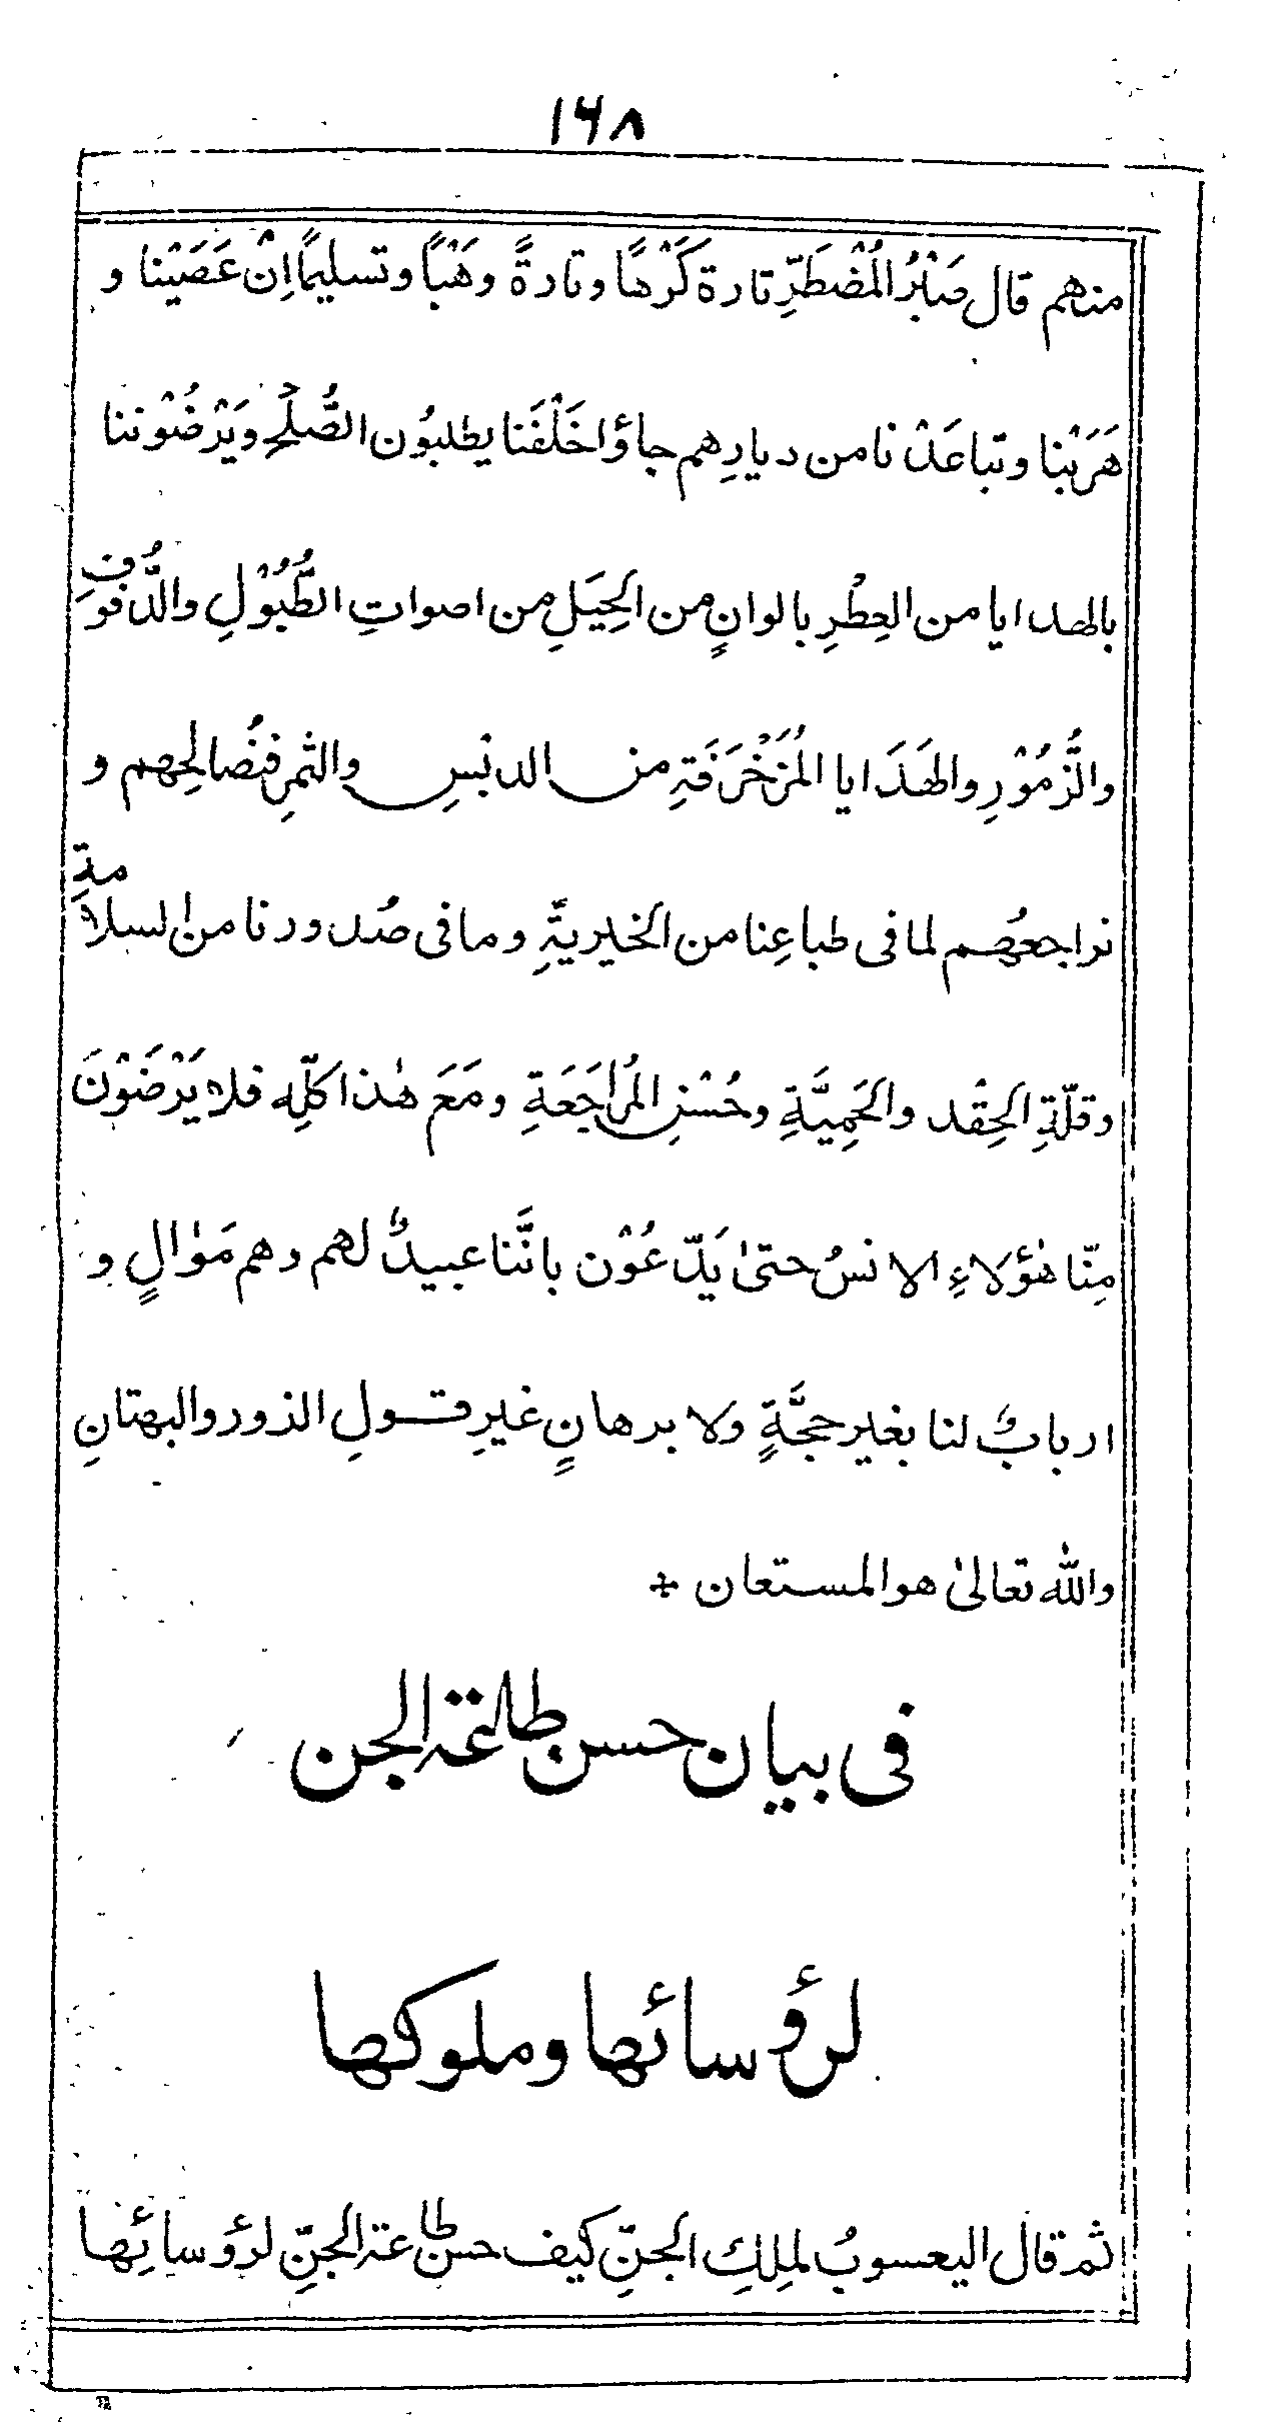 ١٦٨
منهم قال صَبْرُ المُضْطَرِّ تارة كَرْهًا وتارةً وهَبًا وتسليمًا اِنْ عَصَيْنا و
هَرَبْنا وتباعَدْنا من ديارِهم جاؤا خَلْفَنا يطلبوُن الصُّلْحَ ويَرْضُوْننا
بالهدايا من العِطْرِ بالوانٍ من الحِيَلِ من اصواتِ الطُّبُوْلِ والدُّفُوفِ
والزُّمُوْرِ والهَدَايا المُزَخْرَفَةِ من الدبْسِ والثمرِ فنُصالحِهم و
نراجعُهم لما فى طباعِنا من الخيريةِ وما فى صُدورنا من السلامةِ
وقلّةِ الحِقْد والحَمِيَّةِ وحُسْنِ المُرَاجَعَةِ ومَعَ هٰذا كلِّه فلا يَرْضَوْنَ
مِنّا هٰؤلاءِ الانسُ حتىٰ يَدّعُوْن بانَّنا عبيدٌ لهم وهم مَوٰالٍ و
اربابٌ لنا بغير حجَّةٍ ولا برهانٍ غيرِ قولِ الزور والبهتانِ
والله تعالىٰ هو المستعان
فى بيان حسن طاعة الجن
لرؤسائها وملوكها
ثم قال اليعسوبُ لملِكِ الجنِّ كيف حسن طاعة الجنِّ لرؤسائِها